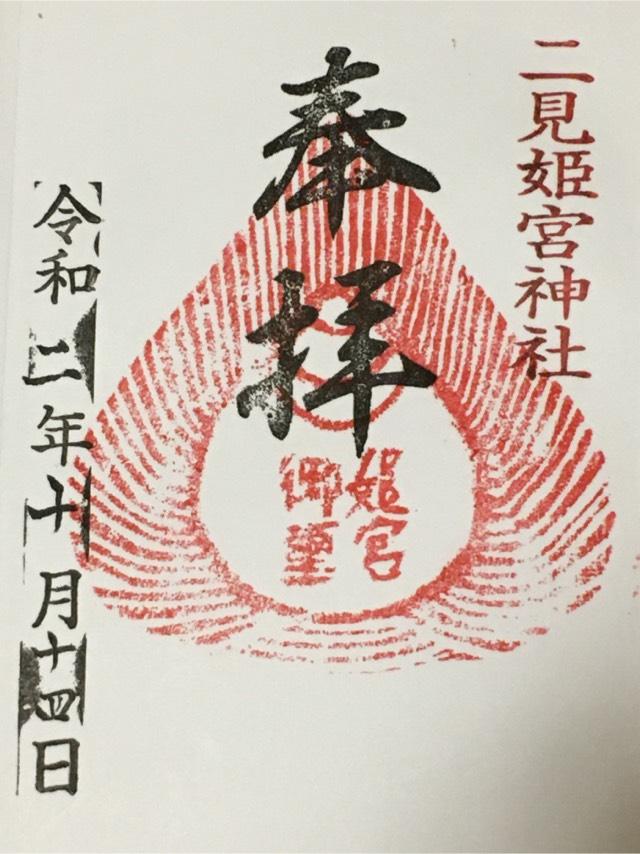 二見姫宮神社
奉拝
姫宮
御璽
令和二年十月十四日